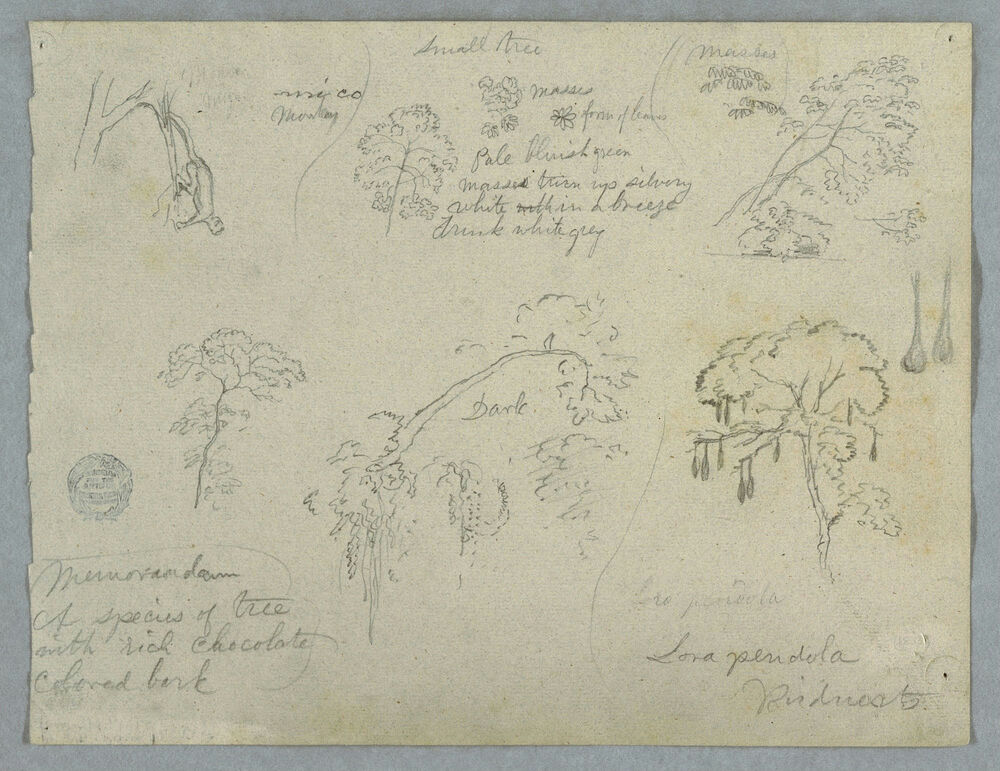 Small tree
masses
mico
Monkey
masses
form of leaves
Pale bluish green
masses turn up silvery
white within a breeze
trunk white grey
Dark
Memorandum
A species of tree
with rich chocolate
colored bark
Lora pendola
Lora pendola
Birdnests